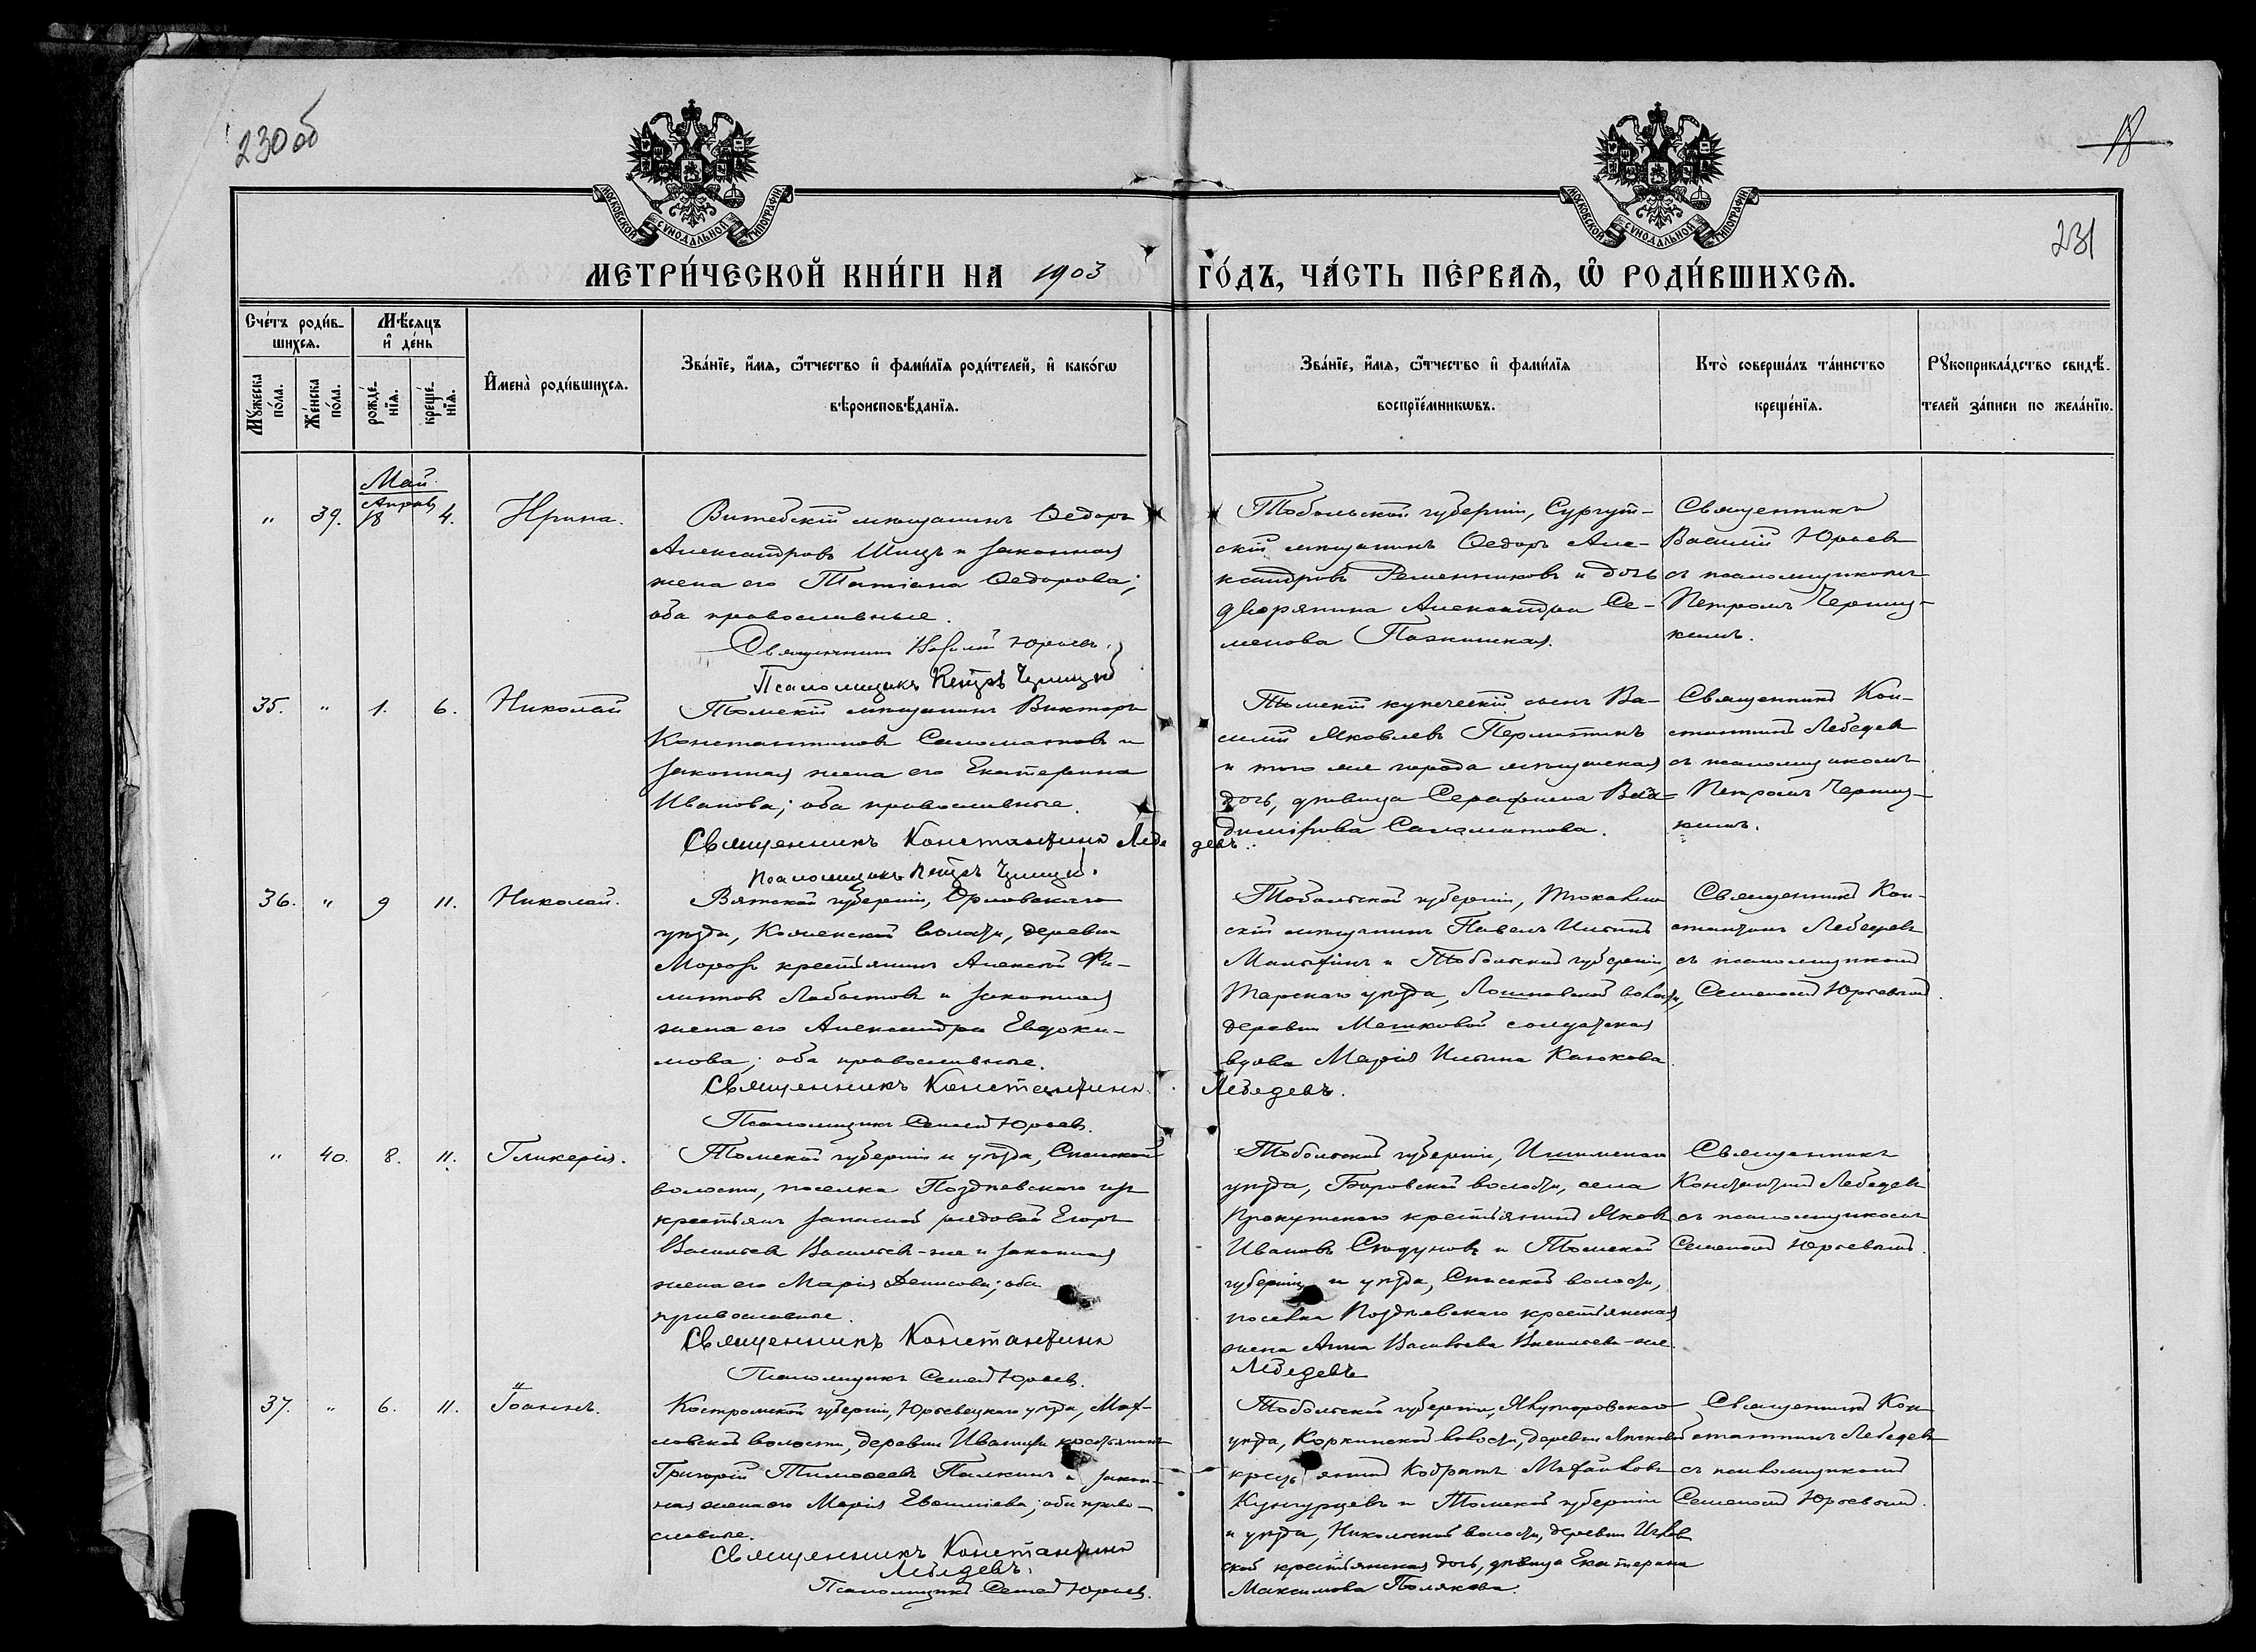 230 об
18
231
МОСКОВСКОЙ СѴНОДАЛЬНОЙ ТИПОГРАФІИ
МОСКОВСКОЙ СѴНОДАЛЬНОЙ ТИПОГРАФІИ
МЕТРИ́ЧЕСКОЙ КНИ́ГИ НА 1903 ГО́ДЪ, ЧА́СТЬ ПЕ́РВАѦ, Ѡ РОДИ́ВШИХСѦ.
Сче́тъ роди́в-
шихсѧ.
Мꙋжеска по́ла.
Же́нска по́ла.
Мѣ́сѧцъ и де́нь
рожде́-
нїѧ.
креще́-
нїѧ.
Имена̀ роди́вшихсѧ.
Зва́нїе, и́мѧ, ѻ́тчество и фами́лїѧ роди́телей, и како́гѡ
вѣроисповѣ́данїѧ.
Зва́нїе, и́мѧ, ѻ́тчество и фами́лїѧ
воспрїе́мникѡвъ.
Кто̀ соверша́лъ та́инство
креще́нїѧ.
Рꙋкоприкла́дство свидѣ́-
телей за́писи по жела́нїю.
Май
Апрѣль
" 39. 18 4. Ирина.
Витебскій мѣщанинъ Ѳедоръ
Александровъ Шицъ и законная
жена его Татіана Ѳедорова;
оба православные.
Священникъ Василій Юрьевъ.
Псаломщикъ Петръ
Тобольской губерніи, Сургут-
скій мѣщанинъ Ѳедоръ Але-
ксандровъ Ременниковъ и дочь
дворянина Александра Се-
менова
Священникъ
Василій Юрьевъ
съ псаломщикомъ
Петромъ
35. " 1. 6. Николай
Томскій мѣщанинъ Викторъ
Константиновъ Саломатовъ и
законная жена его Екатерина
Иванова; оба православные.
Священникъ Константинъ Лебедевъ.
Псаломщикъ Петръ
Томскій купеческій сынъ Ва-
силій Яковлевъ Пермитинъ
и того же города мѣщанская
дочь, дѣвица Серафима Вла-
димірова Саломатова.
Священникъ Кон-
стантинъ Лебедевъ
съ псаломщикомъ
Петромъ
36. " 9 11. Николай.
Вятской губерніи, Орловскаго
уѣзда, волости, деревни
Морозъ крестьянинъ Алексѣй Фи-
липповъ и законная
жена его Александра Евдоки-
мова; оба православные.
Священникъ Константинъ Лебедевъ.
Псаломщикъ Семенъ Юрьевъ.
Тобольской губерніи, Тюкалин-
скій мѣщанинъ Павелъ Ильинъ
и Тобольской губерніи,
Тарскаго уѣзда, волости,
деревни солдатская
вдова Марія Ильина
Священникъ Кон-
стантинъ Лебедевъ
съ псаломщикомъ
Семеномъ Юрьевымъ.
" 40. 8. 11. Гликерія.
Томской губерніи и уѣзда, Спасской
волости, поселка Поздневскаго изъ
крестьянъ запасной рядовой Егоръ
Васильевъ Васильевъ-же и законная
жена его Марія Денисова; оба
православные.
Священникъ Константинъ Лебедевъ
Псаломщикъ Семенъ Юрьевъ.
Тобольской губерніи, Ишимскаго
уѣзда, Боровской волости, села
Прокутскаго крестьянинъ Яковъ
Ивановъ и Томской
губерніи и уѣзда, Спасской волости,
поселка Поздневскаго крестьянская
жена Анна Васильева Васильева-же.
Священникъ
Константинъ Лебедевъ
съ псаломщикомъ
Семеномъ Юрьевымъ.
37. " 6. 11. Іоаннъ.
Костромской губерніи, Юрьевецкаго уѣзда,
волости, деревни крестьянинъ
Григорій Тимоѳеевъ Палкинъ и закон-
ная жена его Марія; оба право-
славные.
Священникъ Константинъ
Лебедевъ.
Псаломщикъ Семенъ Юрьевъ.
Тобольской губерніи, Ялуторовскаго
уѣзда, Коркинской волости, деревни
крестьянинъ Кодратъ
Кунгурцевъ и Томской губерніи
и уѣзда, Николаевской волости, деревни
крестьянская дочь, дѣвица Екатерина
Максимова Полякова.
Священникъ Кон-
стантинъ Лебедевъ
съ псаломщикомъ
Семеномъ Юрьевымъ.